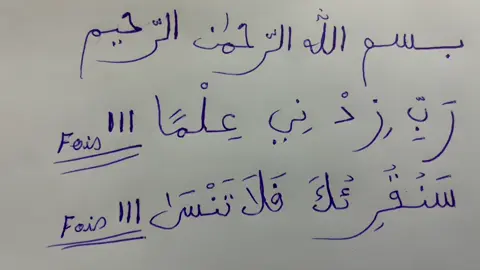 بسم الله الرّحمٰن الرّحيم
رَبِّ زِدْ نِي عِلْمًا Fois 111
سَنُقْرِئُكَ فَلَا تَنْسَىٰ Fois 111